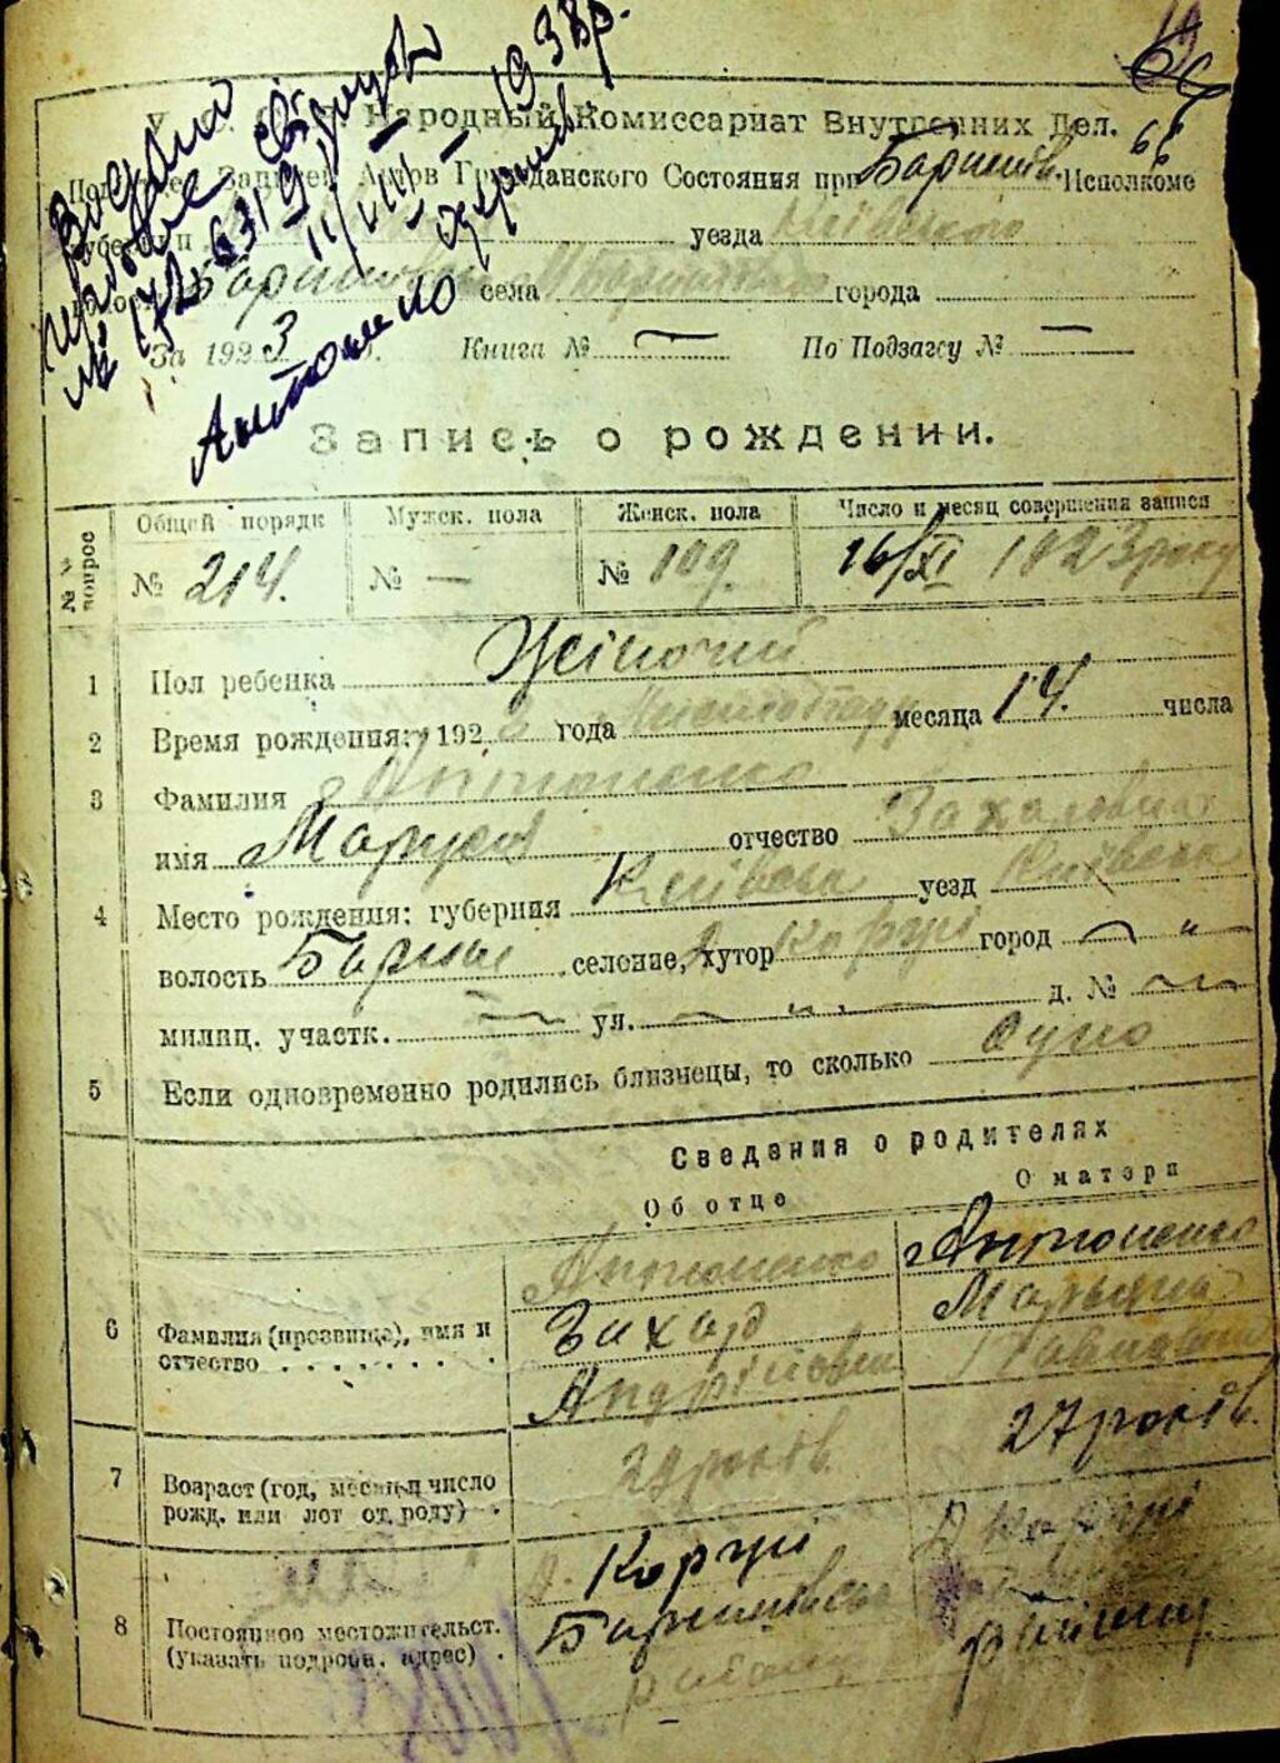 69
66
У. С. Народный Комиссариат Внутренних Дел.
Записей Актов Гражданского Состояния при Баришів. Исполкоме
уезда Київского
села города
За 1923 Книга № — По Подзагсу № —
Видано
№ 172 6319
11/VIII – 1938р.
Антоненко
Запись о рождении.
№ № вопрос Общей порядк Мужск. пола Женск. пола Число и месяц совершения записи
№ 214. № — № 109. 16/XI 1923 року
1 Пол ребенка Жіночий
2 Время рождения: 1923 года Листопаду месяца 14. числа
3 Фамилия Антоненко
имя Маруся отчество Захаровна
4 Место рождения: губерния Київська уезд Київськ
волость Бариш селение, хутор Коржі город — " —
милиц. участк. — ул. — " — д. № —
5 Если одновременно родились близнецы, то сколько одно
Сведения о родителях
Об отце О матери
Антоненко Антоненко
6 Фамилия (прозвище), имя и Захар Марьяна
отчество . . . . . . . . Андрійович
7 Возраст (год, месяц и число 29 років. 27 років.
рожд. или лет от роду) .
с. Коржі с. Коржі
8 Постоянное местожительст. Баришівськ
(указать подробн. адрес) . району району